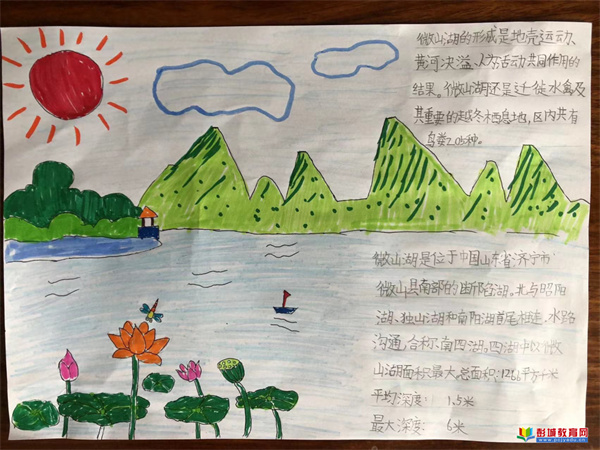 微山湖的形成是地壳运动、
黄河决溢、人为活动共同作用的
结果。微山湖还是迁徙水禽及
其重要的越冬栖息地,区内共有
鸟类205种。
微山湖是位于中国山东省济宁市
微山县南部的由邻召湖。北与昭阳
湖、独山湖和南阳湖首尾相连,水路
沟通,合称南四湖。四湖中以微
山湖面积最大。总面积:1266平方千米
平均深度: 1.5米
最大深度: 6米
彭城教育网